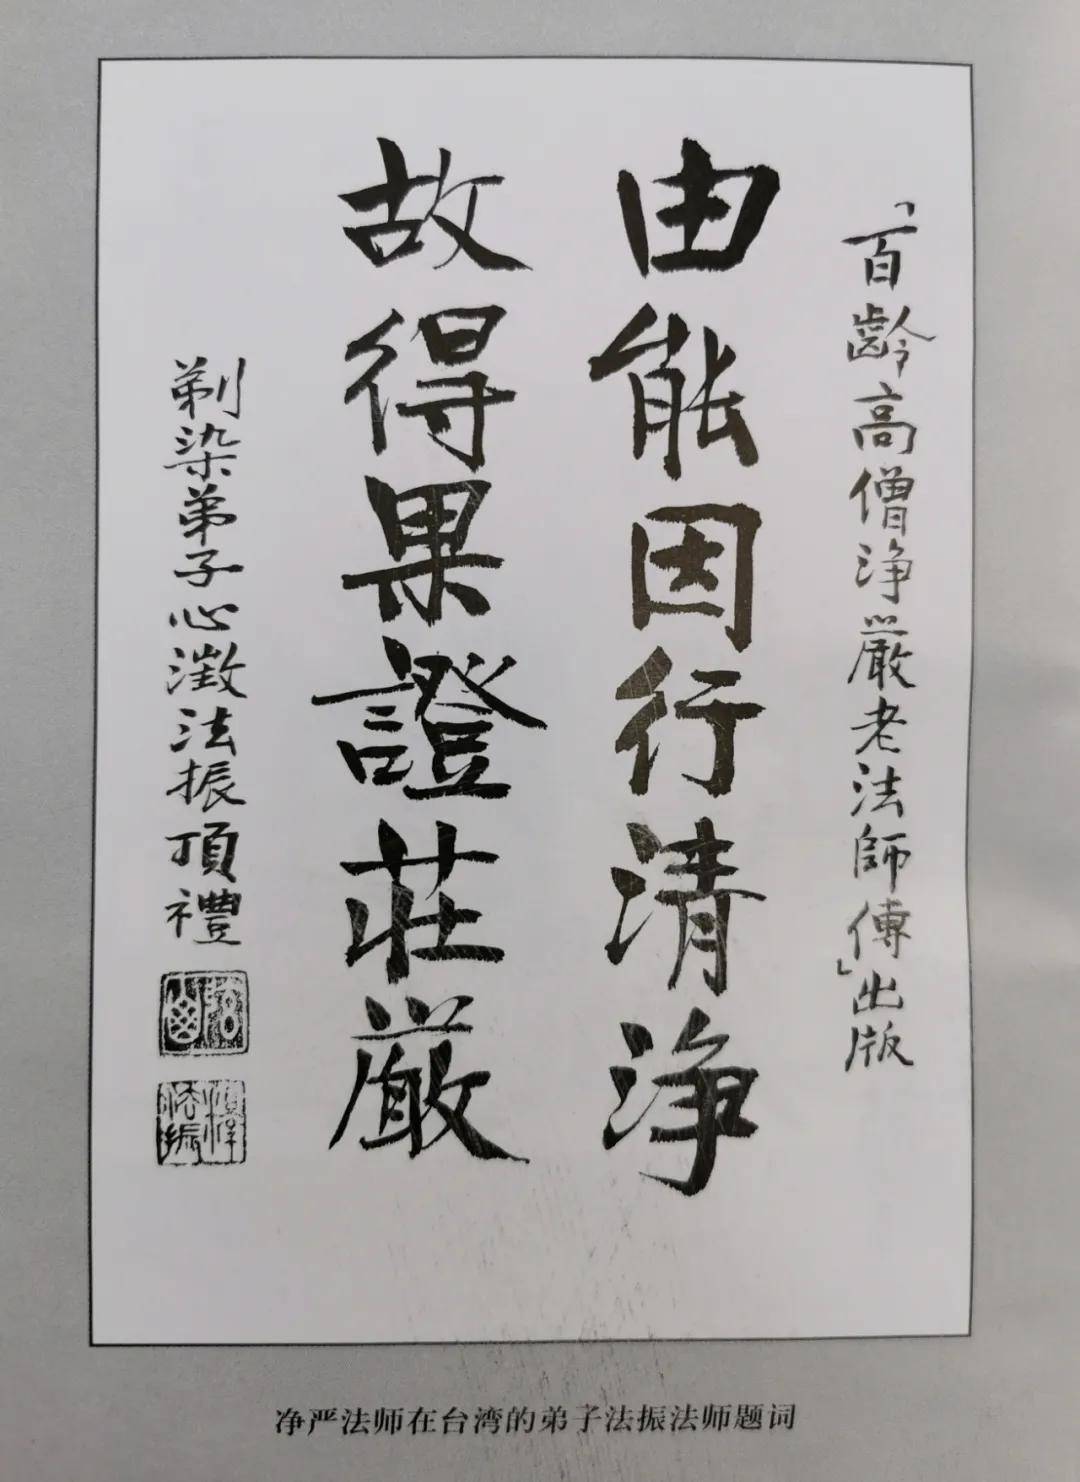 「百齡高僧淨嚴老法師傳」出版
由能因行清淨
故得果證莊嚴
剃染弟子心澂法振頂禮
净严法师在台湾的弟子法振法师题词